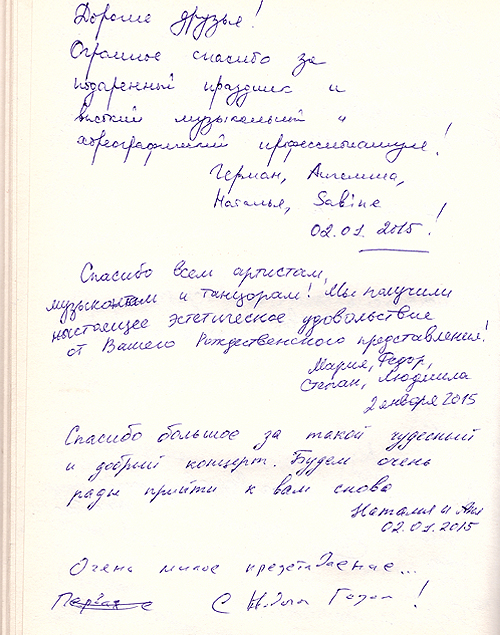 Дорогие друзья!
Огромное спасибо за
подаренный праздник и
высокий музыкальный и
хореографический профессионализм!
Герман, Ангелина,
Наталья, Sabine
02.01.2015!
Спасибо всем артистам,
музыкантам и танцорам! Мы получили
настоящее эстетическое удовольствие
от Вашего Рождественского представления!
Мария, Федор,
Степан, Людмила
2 января 2015
Спасибо большое за такой чудесный
и добрый концерт. Будем очень
рады прийти к вам снова
Наталия и
02.01.2015
Очень милое представление...
С Новым Годом!